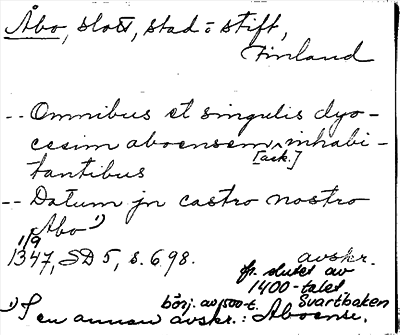 Åbo, slott, stad o stift,
Finland
-- Omnibus et singulis dyo-
cesim aboensem inhabi-
[ack.]
tantibus
-- Datum jn castro nostro
Abo 1)
1/9
1347, SD 5, s. 698. avskr.
fr. slutet av
1400-talet
Svartbäcken
1) I en annan avskr.: Aboensi.
börj. av 1500-t.